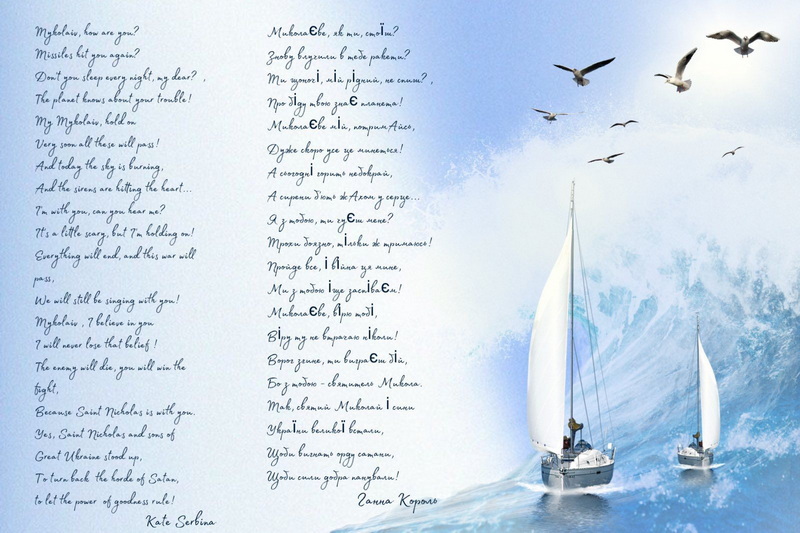 Mykolaiv, how are you?
Missiles hit you again?
Don't you sleep every night, my dear? ,
The planet knows about your trouble!
My Mykolaiv, hold on
Very soon all these will pass!
And today the sky is burning,
And the sirens are hitting the heart...
I'm with you, can you hear me?
It's a little scary, but I'm holding on!
Everything will end, and this war will
pass,
We will still be singing with you!
Mykolaiv, I believe in you
I will never lose that belief!
The enemy will die, you will win the
fight,
Because Saint Nicholas is with you.
Yes, Saint Nicholas and sons of
Great Ukraine stood up,
To turn back the horde of Satan,
to let the power of goodness rule!
Kate Serbina
Миколаєве, як ти, стоїш?
Знову влучили в тебе ракети?
Ти щоночі, мій рідний, не спиш? ,
Про біду твою знає планета!
Миколаєве мій, потримАйсь,
Дуже скоро усе це минеться!
А сьогодні горить небокрай,
А сирени б'ють жАхом у серце...
Я з тобою, ти чуєш мене?
Трохи боязно, тільки ж тримаюсь!
Пройде все, і війна ця мине,
Ми з тобою іще заспіваєм!
Миколаєве, вірю тобі,
Віру ту не втрачаю ніколи!
Ворог згине, ти виграєш бій,
Бо з тобою - святитель Микола.
Так, святий Миколай і сини
України великої встали,
Щоби вигнать орду сатани,
Щоби сили добра панували!
Ганна Король